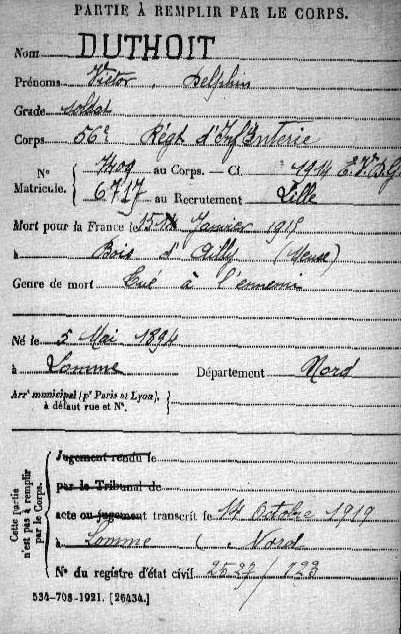 PARTIE À REMPLIR PAR LE CORPS.
Nom DUTHOIT
Prénoms Victor, Delphin
Grade soldat
Corps 56e Régt d'Infanterie
N° Matricule. { 7409 au Corps. — Cl. 1914 E.V.D.G.
6717 au Recrutement Lille
Mort pour la France le 15 Janvier 1915
à Bois d'Ailly (Meuse)
Genre de mort Tué à l'ennemi
Né le 5 Mai 1894
à Lomme Département Nord
Arrt municipal (pr Paris et Lyon), à défaut rue et N°.
Cette partie n'est pas à remplir par le Corps.
Jugement rendu le
par le Tribunal de
acte ou jugement transcrit le 14 Octobre 1919
à Lomme ( Nord
N° du registre d'état civil 2527/123
534-708-1921. [26434.]